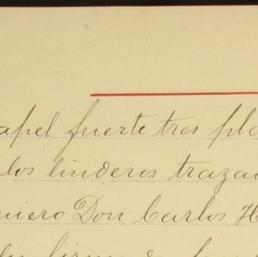 apel fuerte tres pla
los linderos traza
niero Don Carlos H